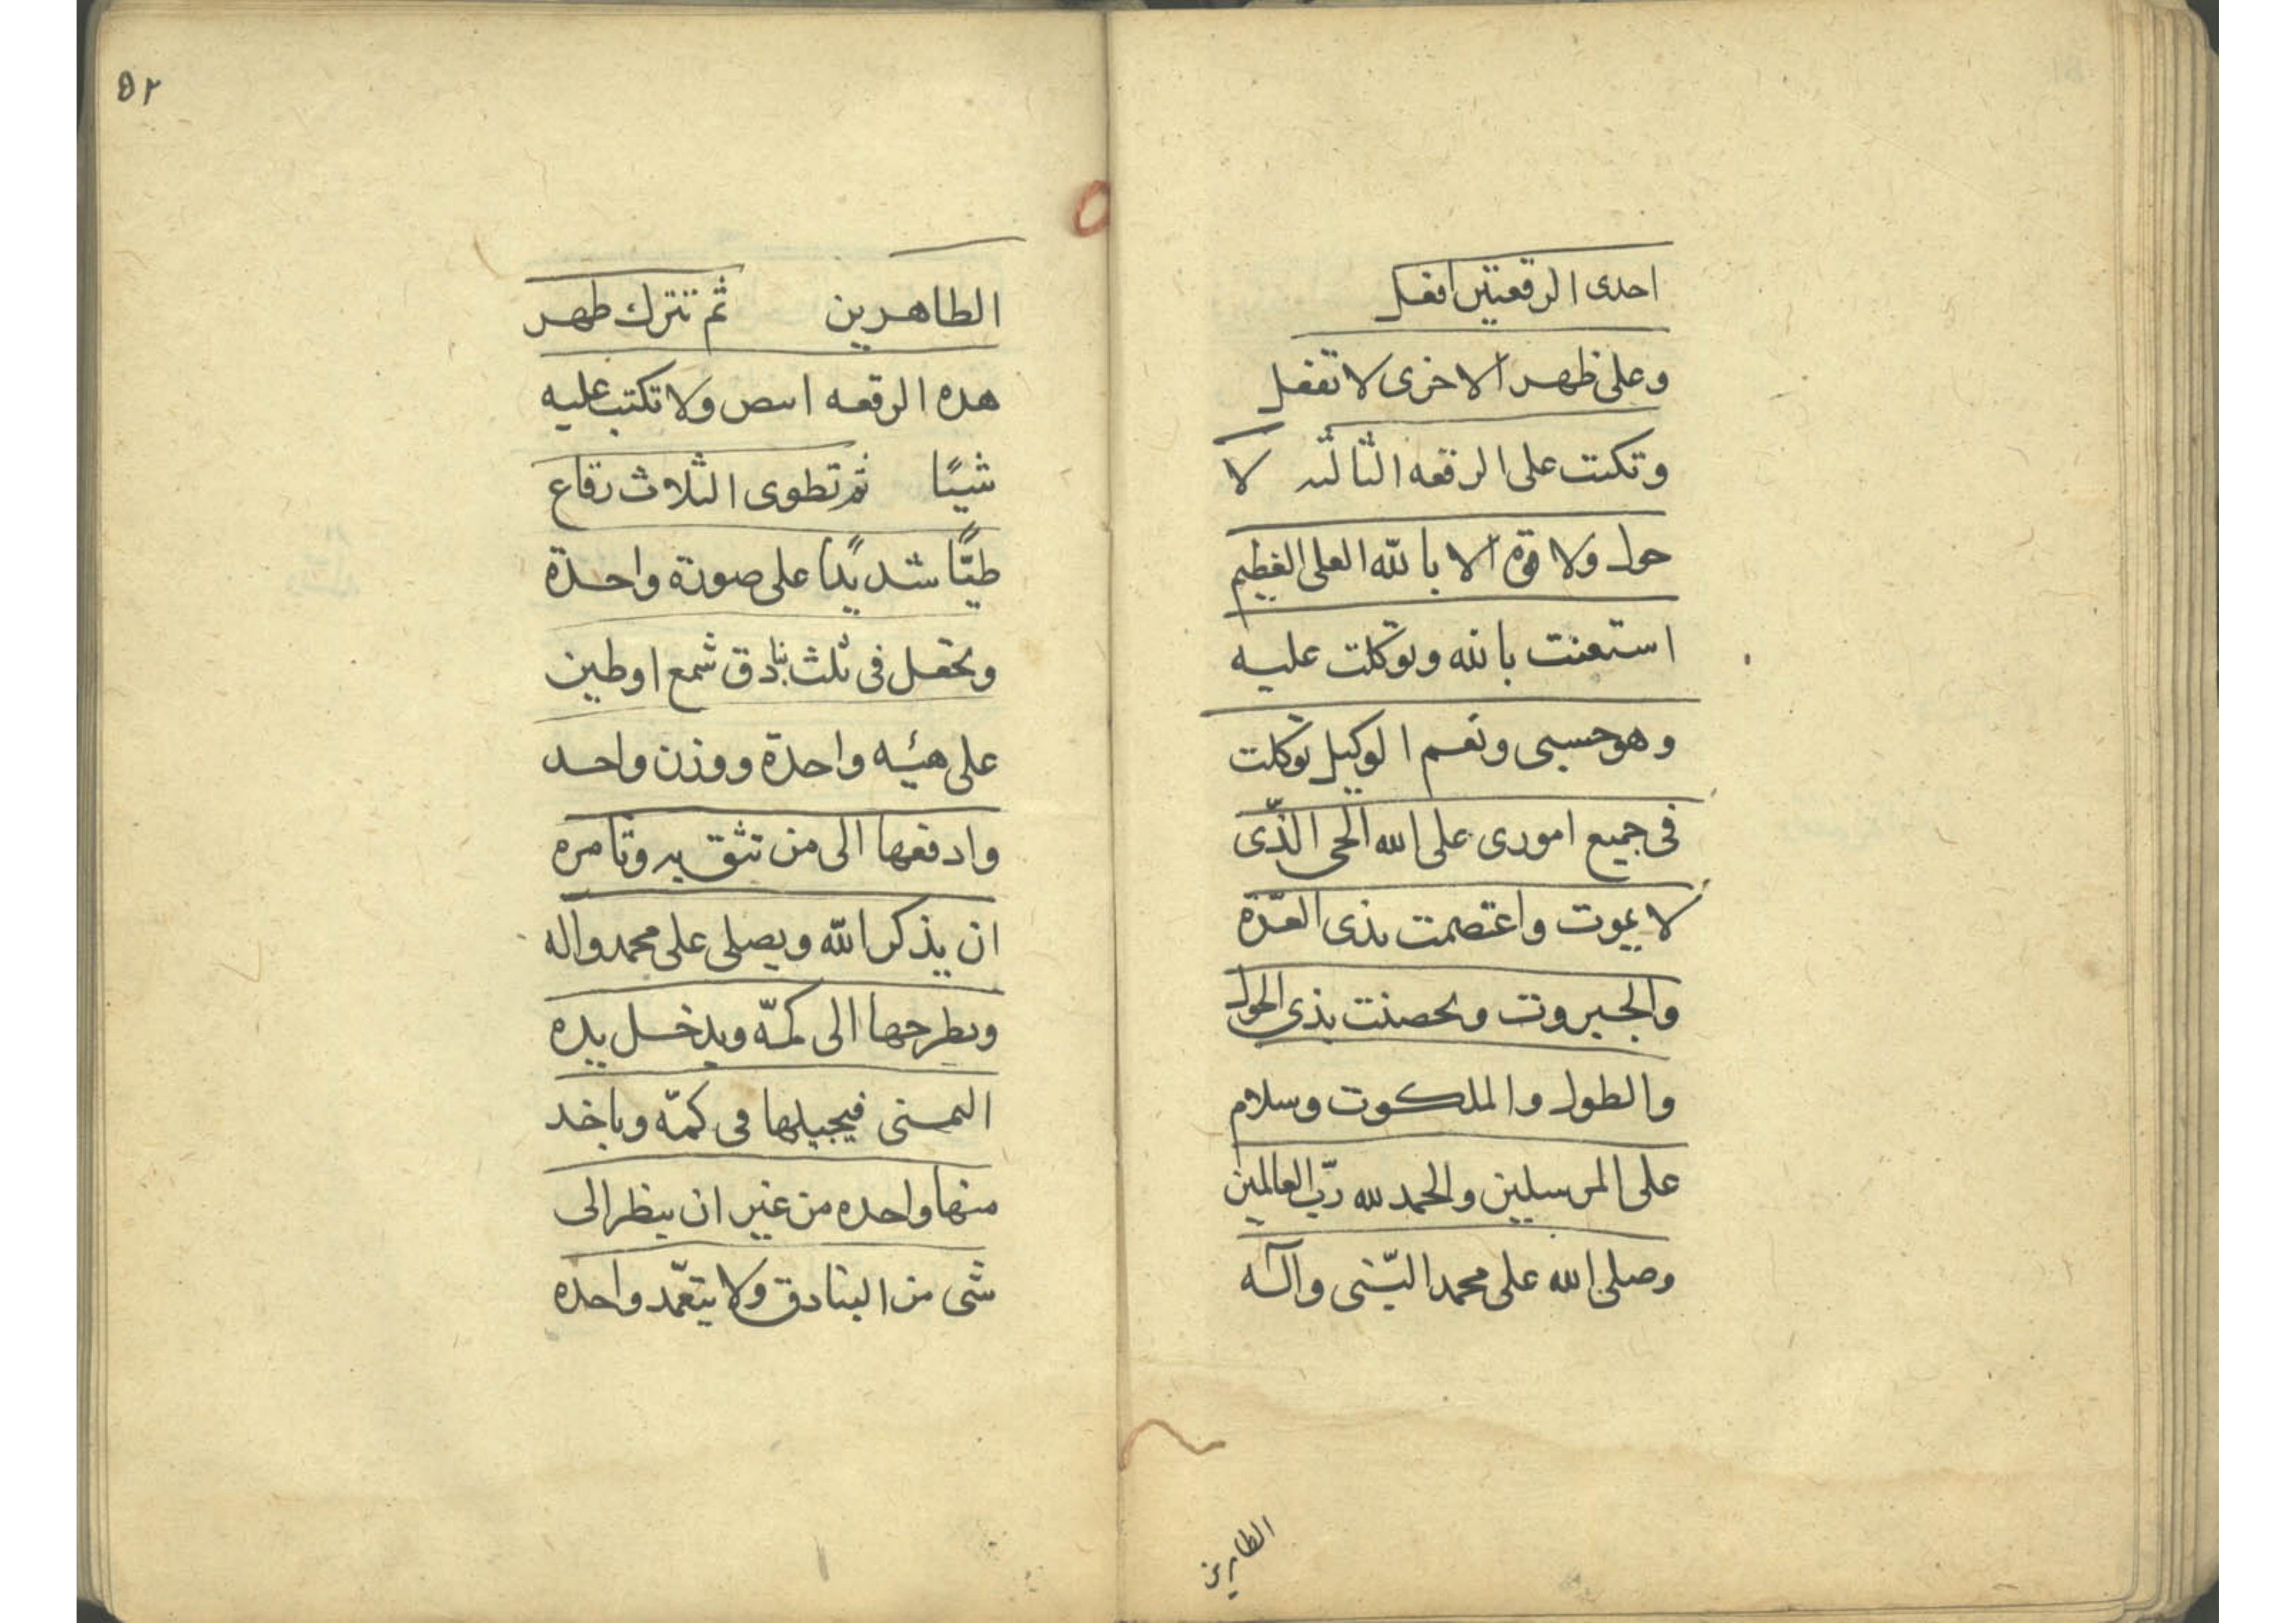 احدى الرقعتين افعل
وعلى ظهر الاخرى لا تفعل
وتكتب على الرقعه الثالثه لا
حول ولا قوة الا بالله العلى العظيم
استعنت بالله وتوكلت عليه
وهو حسبى ونعم الوكيل توكلت
فى جميع امورى على الله الحى الذّى
لا يموت واعتصمت بذى العزّة
والجبروت وتحصنت بذى الحول
والطول والملكوت وسلام
على المرسلين والحمد لله ربّ العالمين
وصلى الله على محمد النّبى وآله
الطاهرين
٥٢
الطاهرين ثم تترك ظهر
هذه الرقعه ابيض ولا تكتب عليه
شيئًا ثم تطوى الثلاث رقاع
طيًّا شديدًا على صورة واحدة
وتجعل فى ثلث بنادق شمع او طين
على هيئه واحدة ووزن واحد
وادفعها الى من تثق به وتامره
ان يذكر الله ويصلى على محمد واله
ويطرحها الى كمّه ويدخل يده
اليمنى فيجيلها فى كمّه وياخذ
منها واحده من غير ان ينظر الى
شى من البنادق ولا يتعمّد واحده